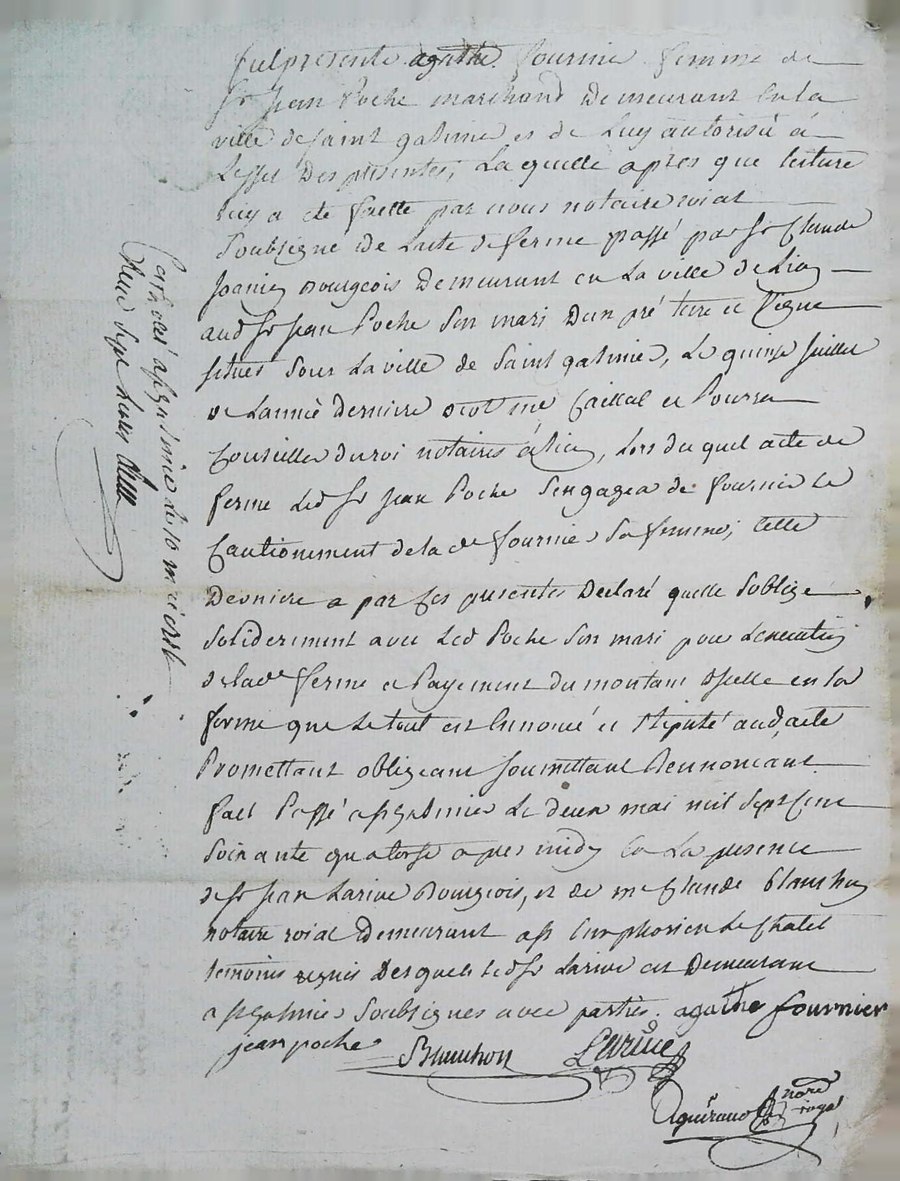 fut presente agathe fournie femme de
sr jean Poche marchand Demeurant En la
ville de saint galmie et de Luy autorisé a
Leffet Des presentes, La quelle apres que lecture
luy a ete faitte par nous notaire roial
soubsigne de Lacte de ferme passé par sr Claude
Bourgeois Demeurant en La ville de Lion
aud sr jean Poche son mari Dun pré terre et vigne
situes sous La ville de saint galmie, Le quinse juillet
de Lannée Derniere et
Conseiller du roi notaires a Lion, Lors du quel acte de
ferme Led sr jean Poche sengagea de fournir le
Cautionement de la de fournier sa femme, cette
Derniere a par Ces presentes Declaré quelle soblige
soliderement avec Led Poche son mari pour Lexecution
de lade ferme et Payement du montant dicelle en la
forme que Le tout est Ennoncé et stipulé aud acte
Promettant obligeant soumettant Rennoncant
fait Passé a st galmier Le deux mai mil sept cent
soixante quatorse apres midy En La presence
de sr jean Larive Bourgeois, et de me Claude Blanchon
notaire roial Demeurant a st simphorien Le Chatel
temoins requis Desquels led sr Larive est Demeurant
a st galmier soubsignes avec parties. agathe fournier
jean poche Blanchon Larive
nore
royal
Controlé a st galmier Le 10 mai 1774
Reçu sept Livres